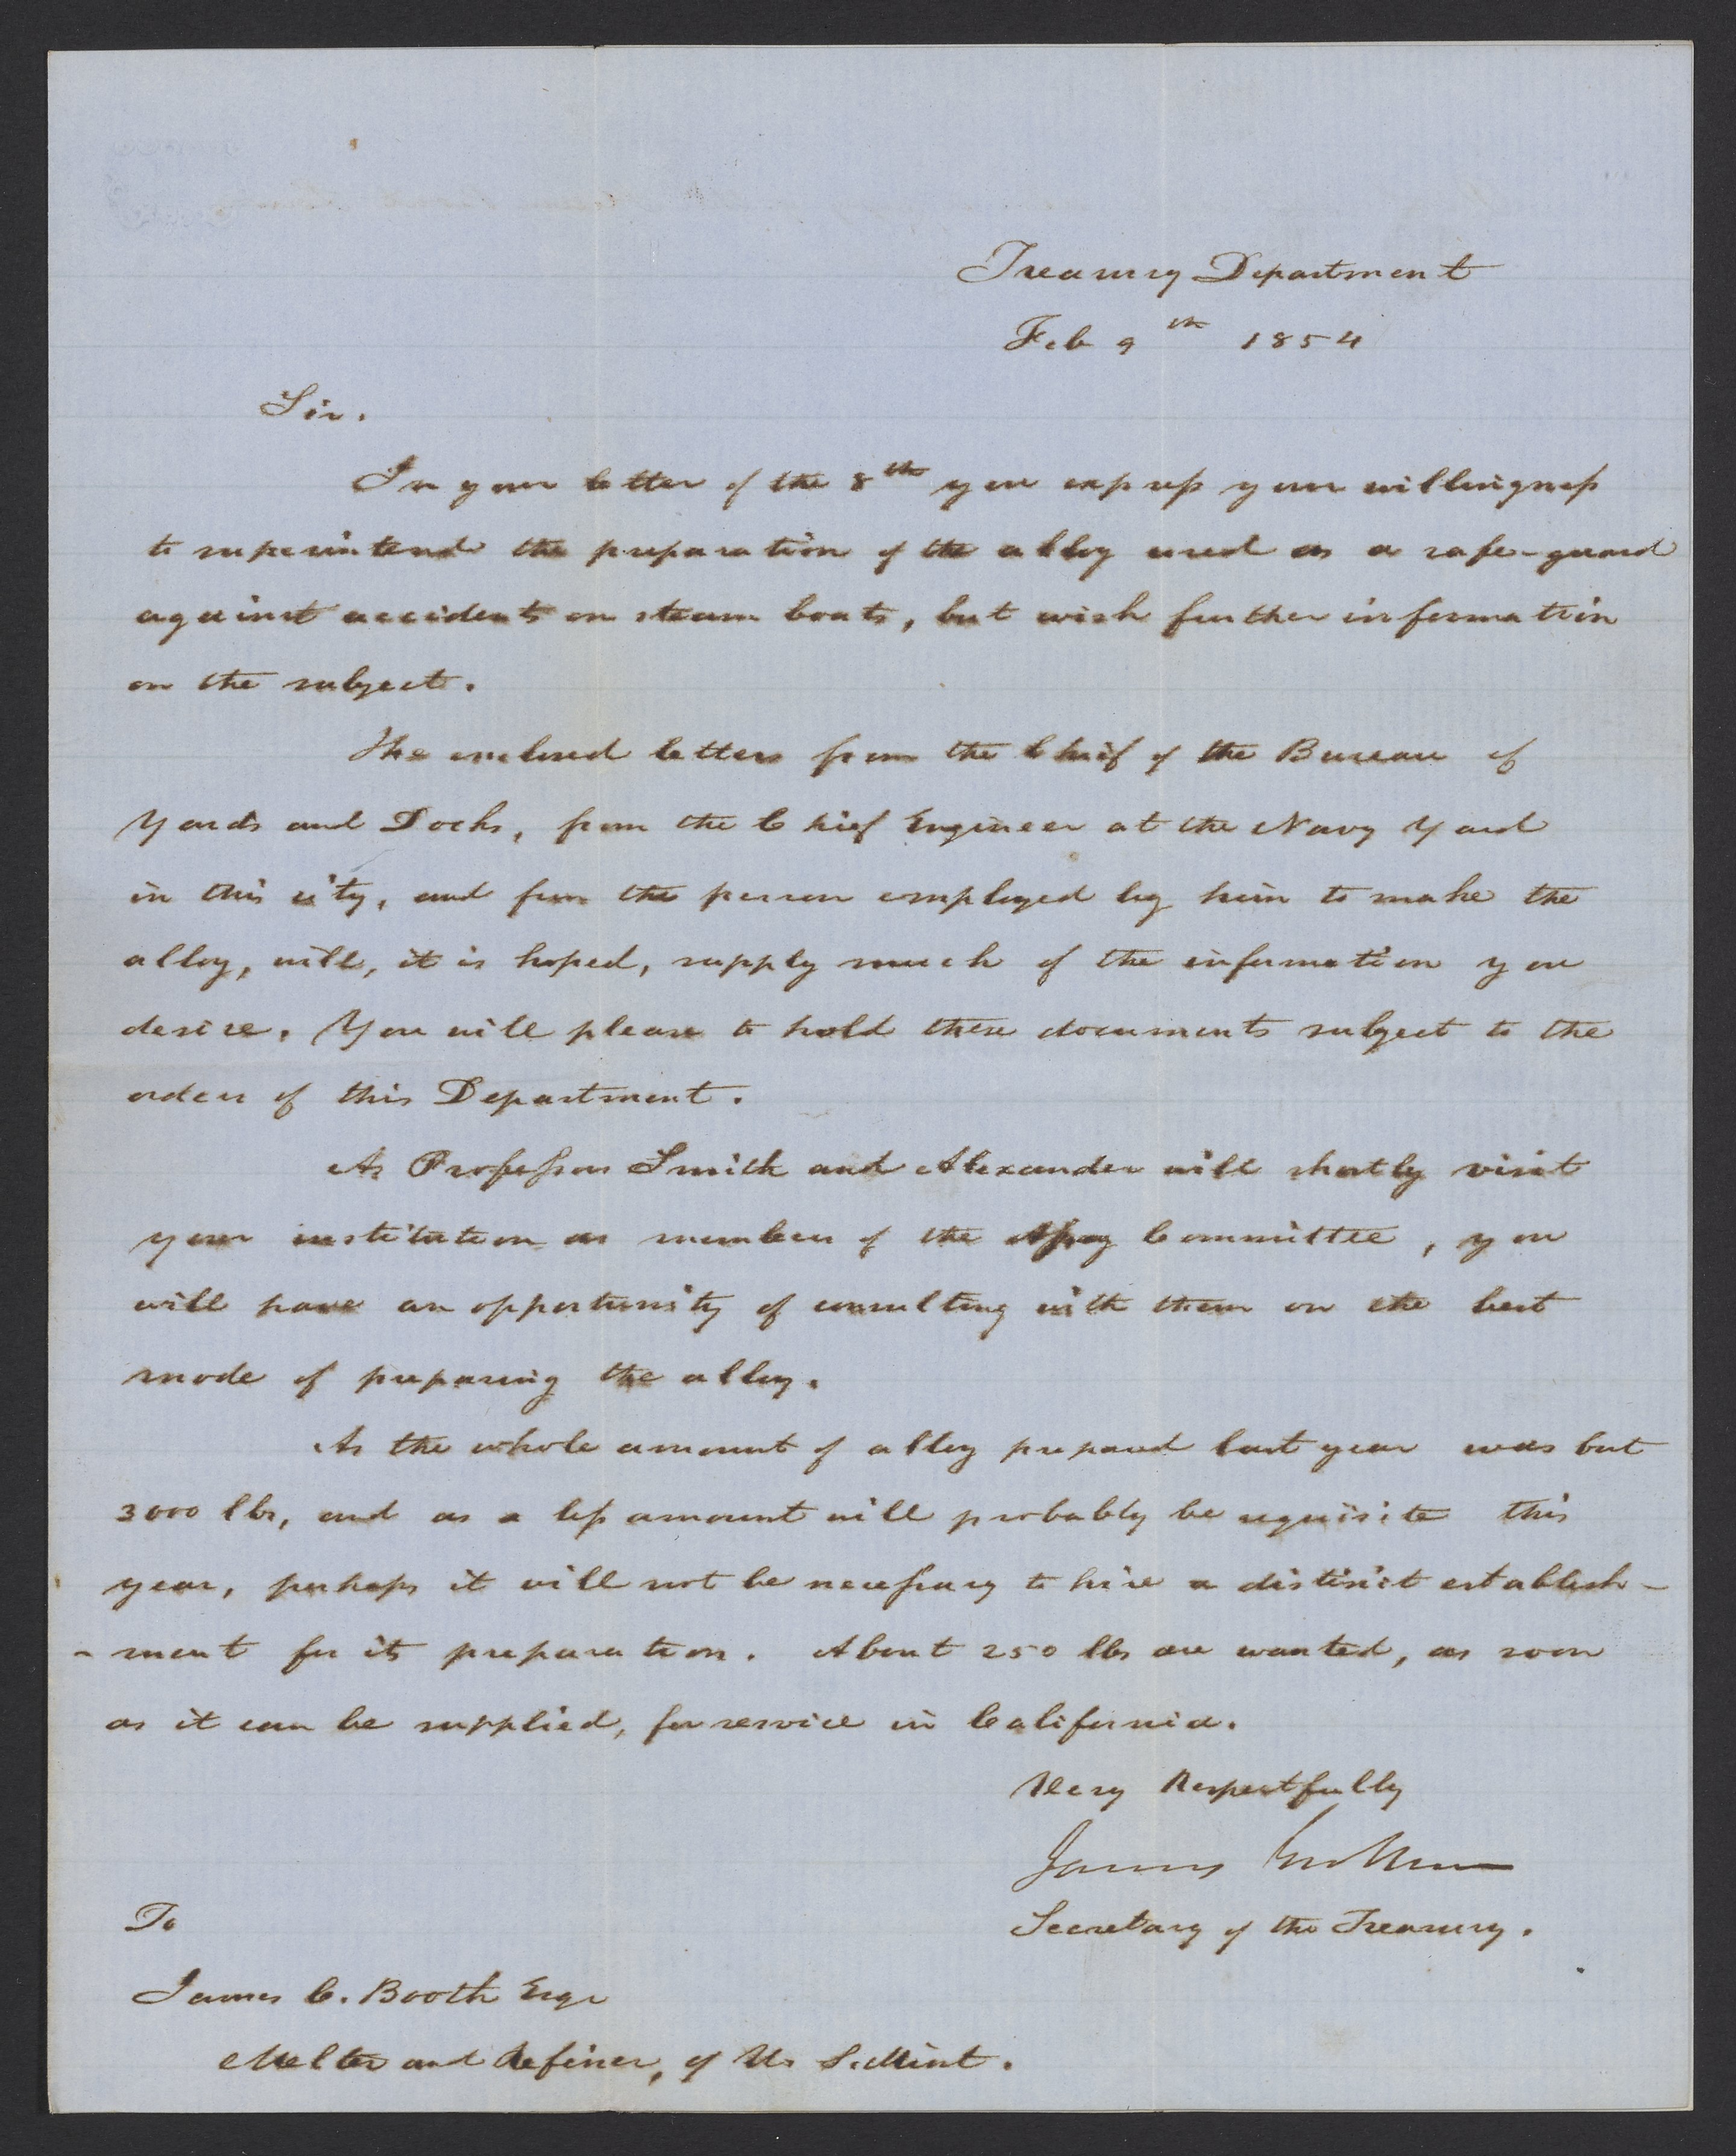 Treasury Department
Feb 9th 1854
Sir.
In your letter of the 8th you express your willingness
to superintend the preparation of the alloy used as a safe-guard
against accidents on steam boats, but wish further information
on the subject.
The enclosed letters from the Chief of the Bureau of
Yards and Docks, from the Chief Engineer at the Navy Yard
in this city, and from the person employed by him to make the
alloy, will, it is hoped, supply much of the information you
desire. You will please to hold these documents subject to the
orders of this Department.
As Professors Smith and Alexander will shortly visit
your institution as members of the Assay Committee, you
will have an opportunity of consulting with them on the best
mode of preparing the alloy.
As the whole amount of alloy prepared last year was but
3000 lbs, and as a less amount will probably be requisite this
year, perhaps it will not be necessary to hire a distinct establish-
-ment for its preparation. About 250 lbs are wanted, as soon
as it can be supplied, for service in California.
Very Respectfully
James Guthrie
Secretary of the Treasury.
To
James C. Booth Esqr
Melter and Refiner, of U. S. Mint.